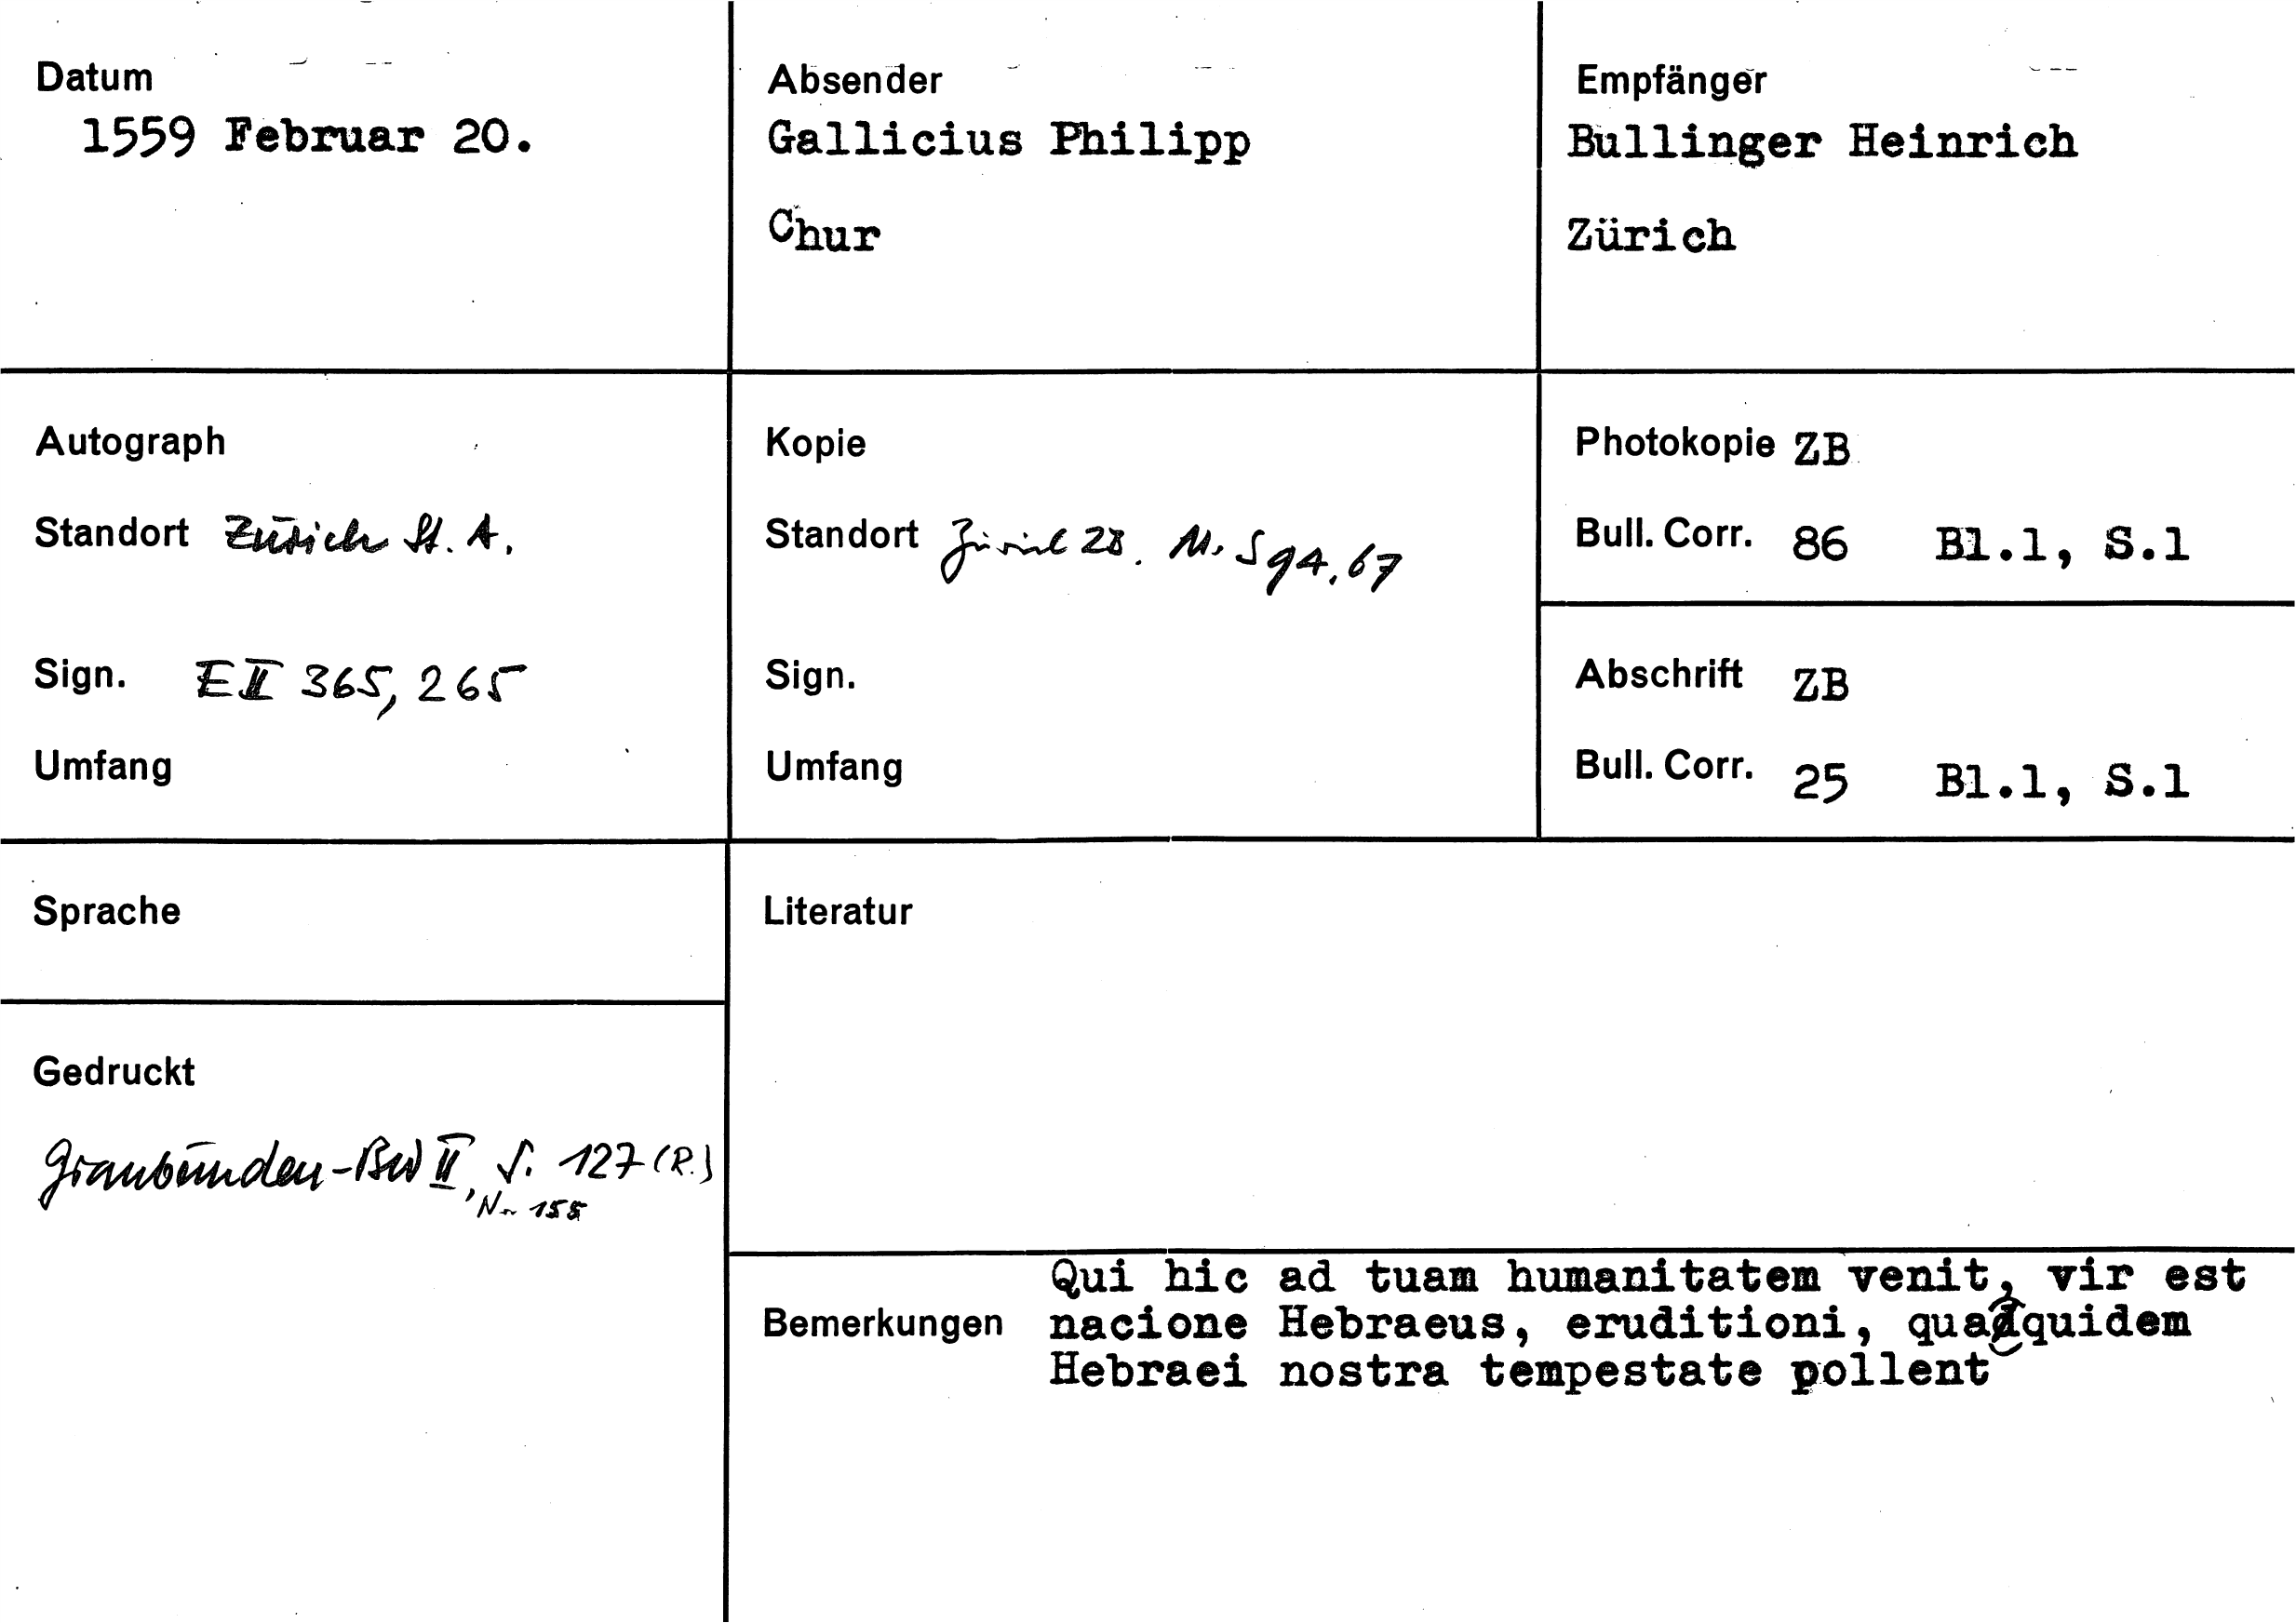 Datum
1559 Februar 20.
Absender
Gallicius Philipp
Chur
Empfänger
Bullinger Heinrich
Zürich
Autograph
Standort Zürich St. A.
Sign. E II 365, 265
Umfang
Kopie
Standort Zürich ZB. Ms S 94, 67
Sign.
Umfang
Photokopie ZB
Bull. Corr. 86 Bl.1, S.1
Abschrift ZB
Bull. Corr. 25 Bl.1, S.1
Sprache
Gedruckt
Graubünden-BW II, S. 127 (R.)
Nr 155
Literatur
Bemerkungen
Qui hic ad tuam humanitatem venit, vir est
nacione Hebraeus, eruditioni, quaquidem
Hebraei nostra tempestate pollent